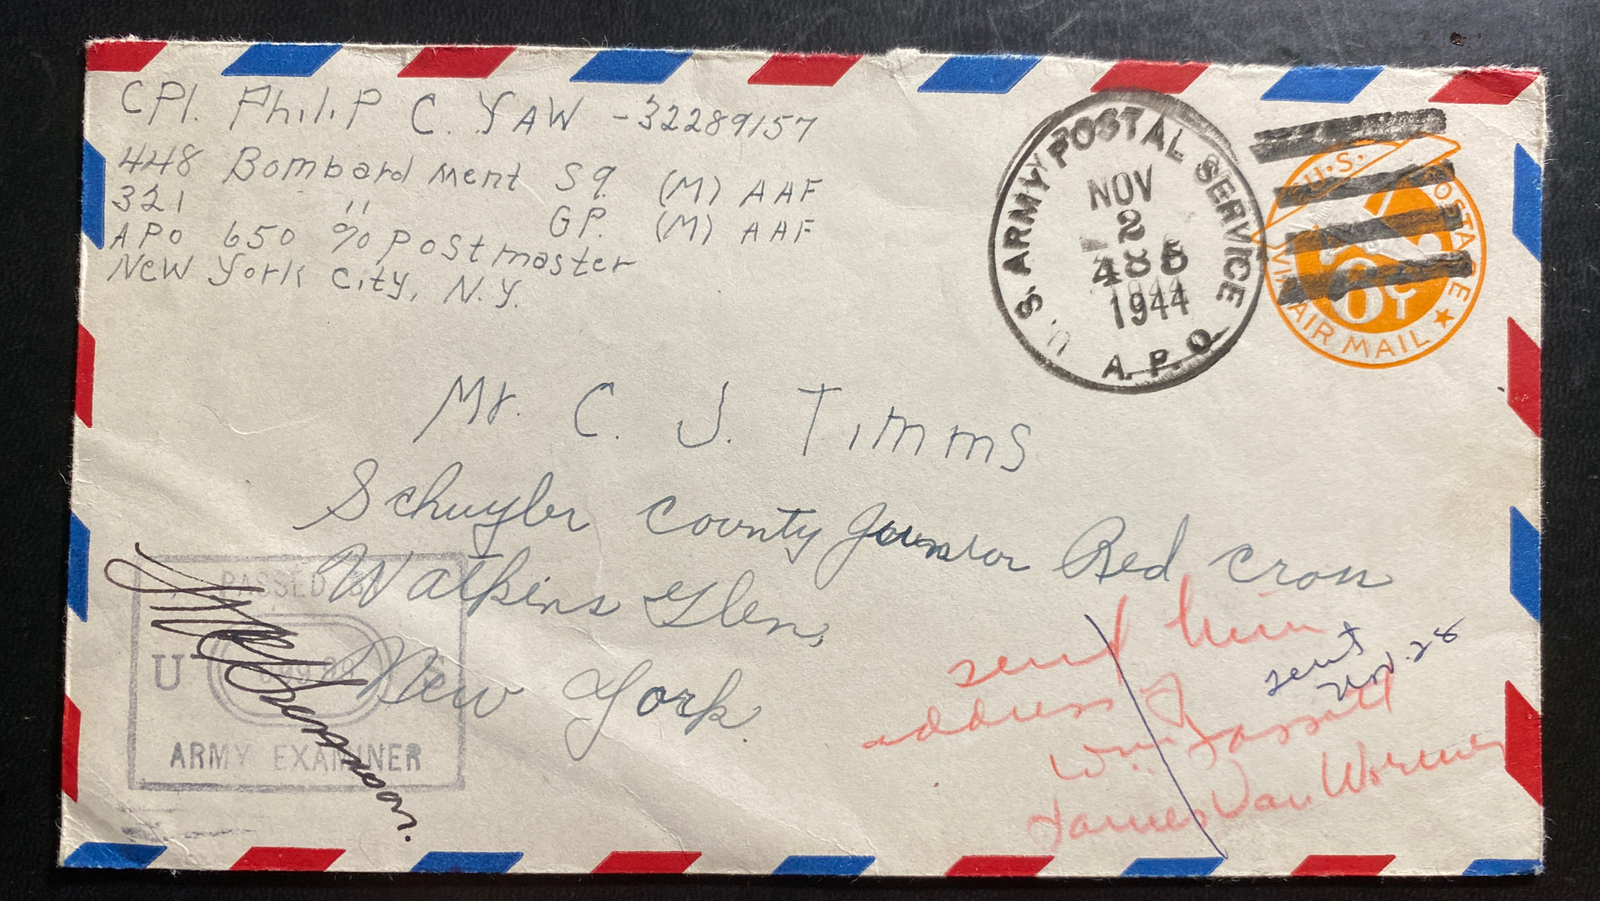 CPl. Philip C. YAW - 32289157
448 Bombardment Sq. (M) AAF
321 " GP. (M) AAF
APO 650 % Postmaster
New York City, N.Y.
U.S. ARMY POSTAL SERVICE
NOV
2
1944
A.P.O.
U.S. POSTAGE
6CY
VIA AIR MAIL
Mr. C. J. Timms
Schuyler County Junior Red Cross
Watkins Glen,
New York.
PASSED BY
U S
ARMY EXAMINER
send him
address of
Wm. Fassett
James Van Wormer
sent
Nov. 28